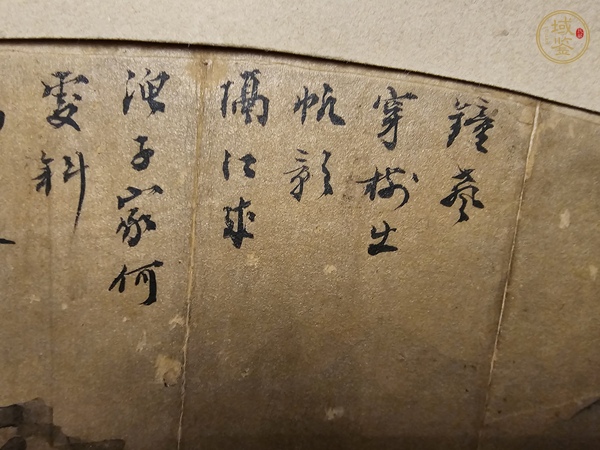 鐘聲
穿樹出
帆影
隔江來
漁子家何
處斜
域鉴